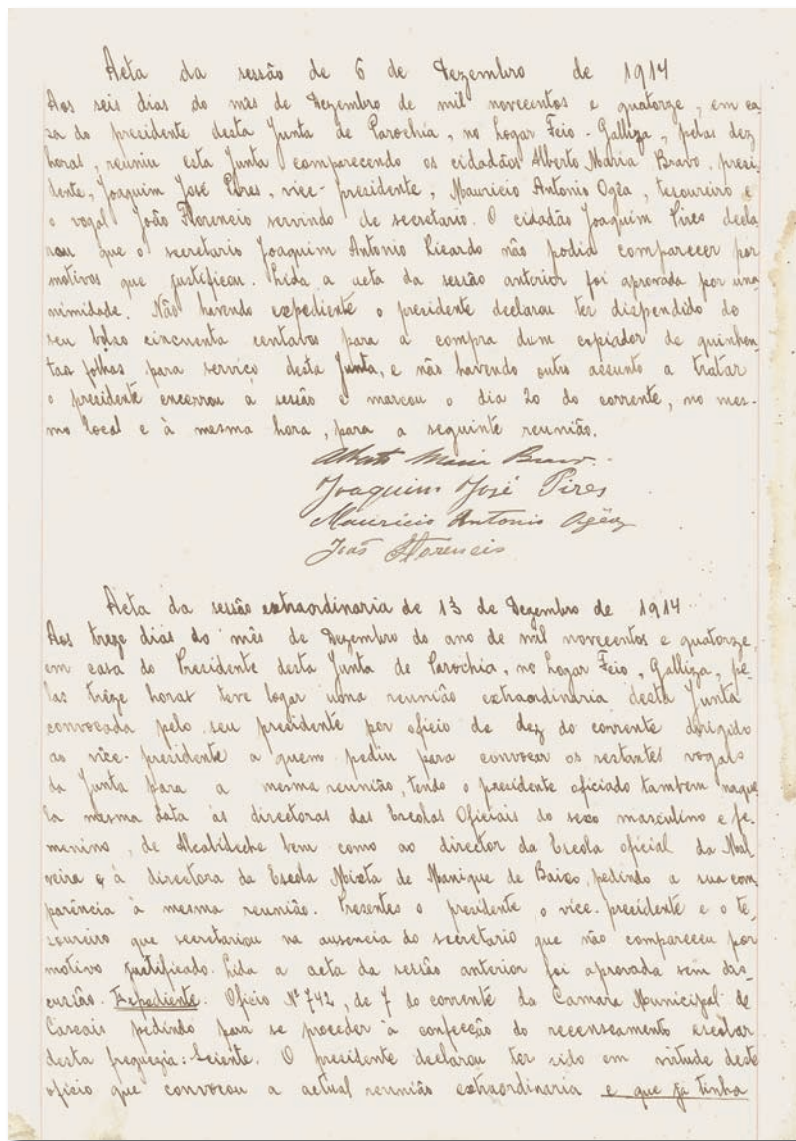 Acta da sessão de 6 de Dezembro de 1914
Aos seis dias do mês de Dezembro de mil novecentos e quatorze, em ca-
za do presidente desta Junta de Parochia, no Logar Feio - Galliza, pelas dez
horas, reuniu esta Junta comparecendo os cidadãos Alberto Maria Bravo, presi-
dente, Joaquim José Pires, vice-presidente, Mauricio Antonio Ogêa, tesoureiro e
o vogal João Florencio servindo de secretario. O cidadão Joaquim Pires decla-
rou que o secretario Joaquim Antonio Ricardo não podia comparecer por
motivos que justificou. Lida a acta da sessão anterior foi aprovada por una-
nimidade. Não havendo expediente o presidente declarou ter dispendido do
seu bolso cincuenta centavos para a compra dum copiador de quinhen-
tas folhas para serviço desta Junta, e não havendo outro assunto a tratar
o presidente encerrou a sessão e marcou o dia 20 do corrente, no mes-
mo local e à mesma hora, para a seguinte reunião.
Alberto Maria Bravo.
Joaquim José Pires
Mauricio Antonio Ogêa
João Florencio
Acta da sessão extraordinaria de 13 de Dezembro de 1914
Aos treze dias do mês de Dezembro do ano de mil novecentos e quatorze,
em casa do Presidente desta Junta de Parochia, no Logar Feio, Galliza, pe-
las trêze horas teve logar uma reunião extraordinaria desta Junta
convocada pelo seu presidente por oficio de dez do corrente dirigido
ao vice-presidente a quem pediu para convocar os restantes vogais
da Junta para a mesma reunião, tendo o presidente oficiado tambem naque-
la mesma data às directoras das Escolas Oficiais do sexo masculino e fe-
menino, de Alcabideche bem como ao director da Escola oficial da Mal
veira e à directora da Escola Mixta de Manique de Baixo, pedindo a sua com-
parência à mesma reunião. Presentes o presidente, o vice-presidente e o te-
zoureiro que secretariou na ausencia do secretario que não compareceu por
motivo justificado. Lida a acta da sessão anterior foi aprovada sem dis-
cussão. Expediente: Oficio Nº 742, de 7 do corrente da Camara Municipal de
Cascais pedindo para se proceder à confecção do recenseamento escolar
desta freguezia: Sciente. O presidente declarou ter sido em virtude deste
oficio que convocou a actual reunião extraordinaria e que já tinha